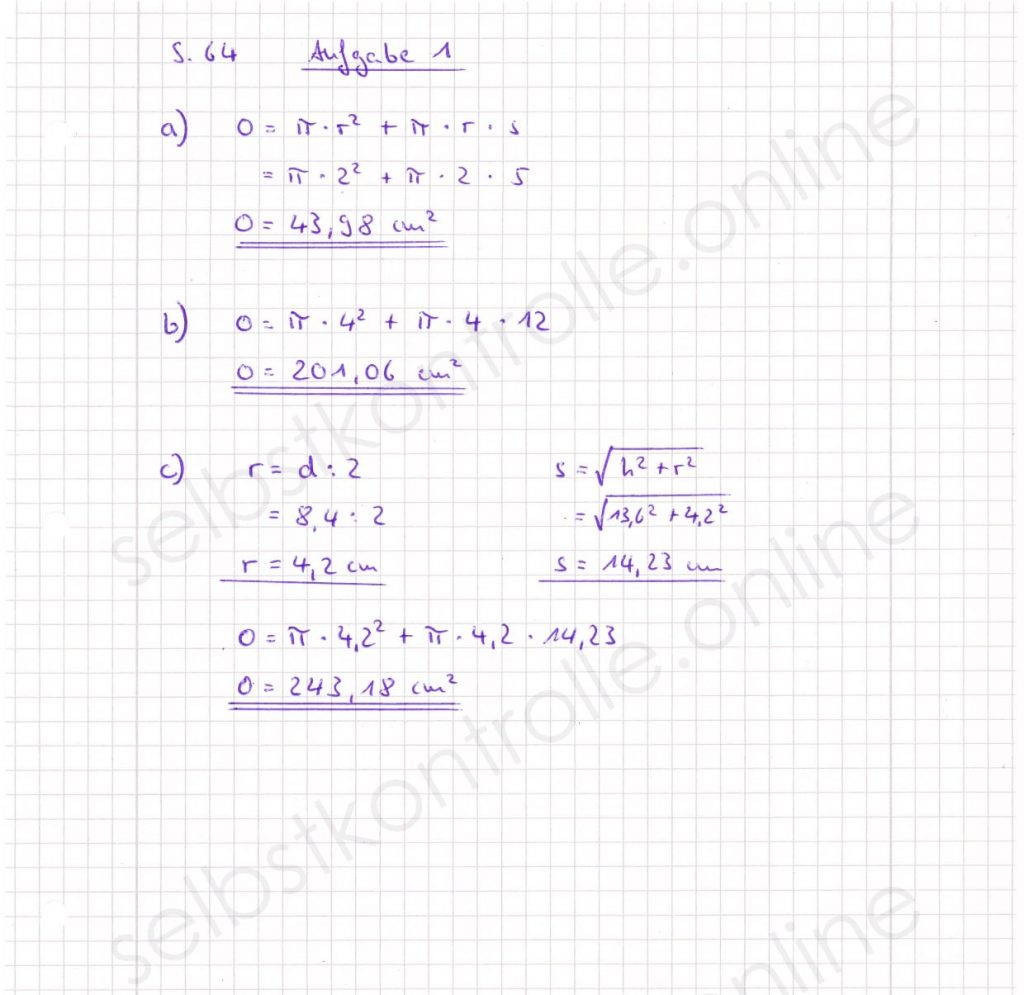 S. 64 Aufgabe 1
a) O = π · r² + π · r · s
= π · 2² + π · 2 · 5
O = 43,98 cm²
b) O = π · 4² + π · 4 · 12
O = 201,06 cm²
c) r = d : 2 s = √(h² + r²)
= 8,4 : 2 = √(13,6² + 4,2²)
r = 4,2 cm s = 14,23 cm
O = π · 4,2² + π · 4,2 · 14,23
O = 243,18 cm²
selbstkontrolle.online
selbstkontrolle.online
selbstkontrolle.online